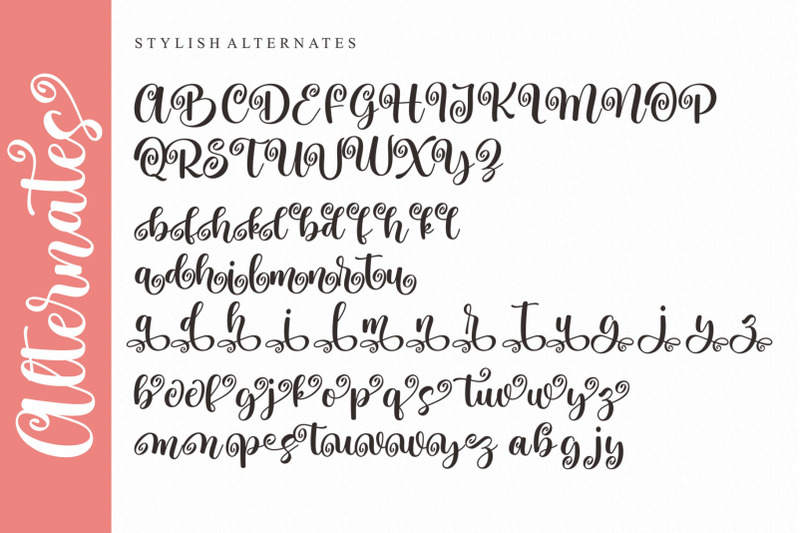 Alternates
STYLISH ALTERNATES
ABCDEFGHIJKLMNOP
QRSTUVWXYZ
bfhklbdfhkl
adhilmnrtu
a d h i l m n r t u g j y z
boofgjkopqs tuvwyz
mnpestuvwyz abgjy